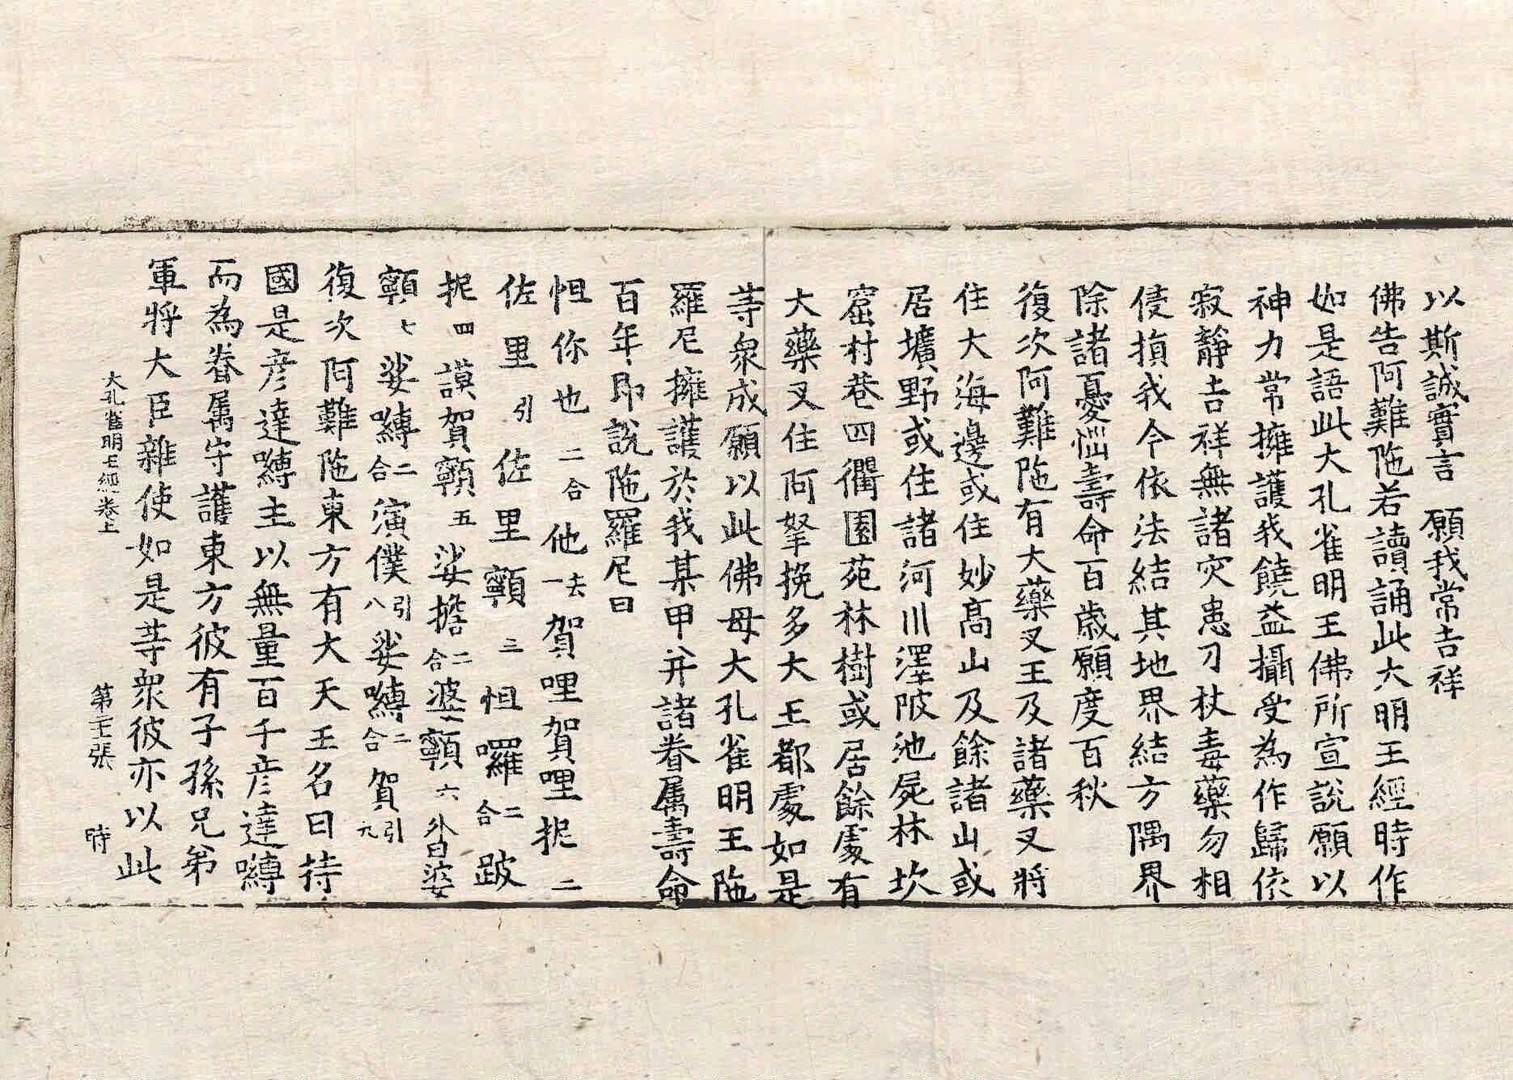 以斯誠實言　願我常吉祥
佛告阿難陁若讀誦此大明王經時作
如是語此大孔雀明王佛所宣說願以
神力常擁護我饒益攝受為作歸依
寂靜吉祥無諸灾患刀杖毒藥勿相
侵損我今依法結其地界結方隅界
除諸憂惱壽命百歲願度百秋
復次阿難陁有大藥叉王及諸藥叉將
住大海邊或住妙高山及餘諸山或
居壙野或住諸河川澤陂池屍林坎
窟村巷四衢園苑林樹或居餘處有
大藥叉住阿拏挽多大王都處如是
等衆成願以此佛母大孔雀明王陁
羅尼擁護於我某甲并諸眷属壽命
百年即說陁羅尼曰
怛你也二合他去一賀哩賀哩抳二
佐里引佐里顊三怛囉二合跛
抳四謨賀顊五娑擔二合婆顊六昝婆
顊七娑嚩二合演僕引八娑嚩二合賀引九
復次阿難陁東方有大天王名曰持
國是彦達嚩主以無量百千彦達嚩
而為眷属守護東方彼有子孫兄弟
軍將大臣雜使如是等衆彼亦以此
大孔雀明王經卷上　第二十張　時